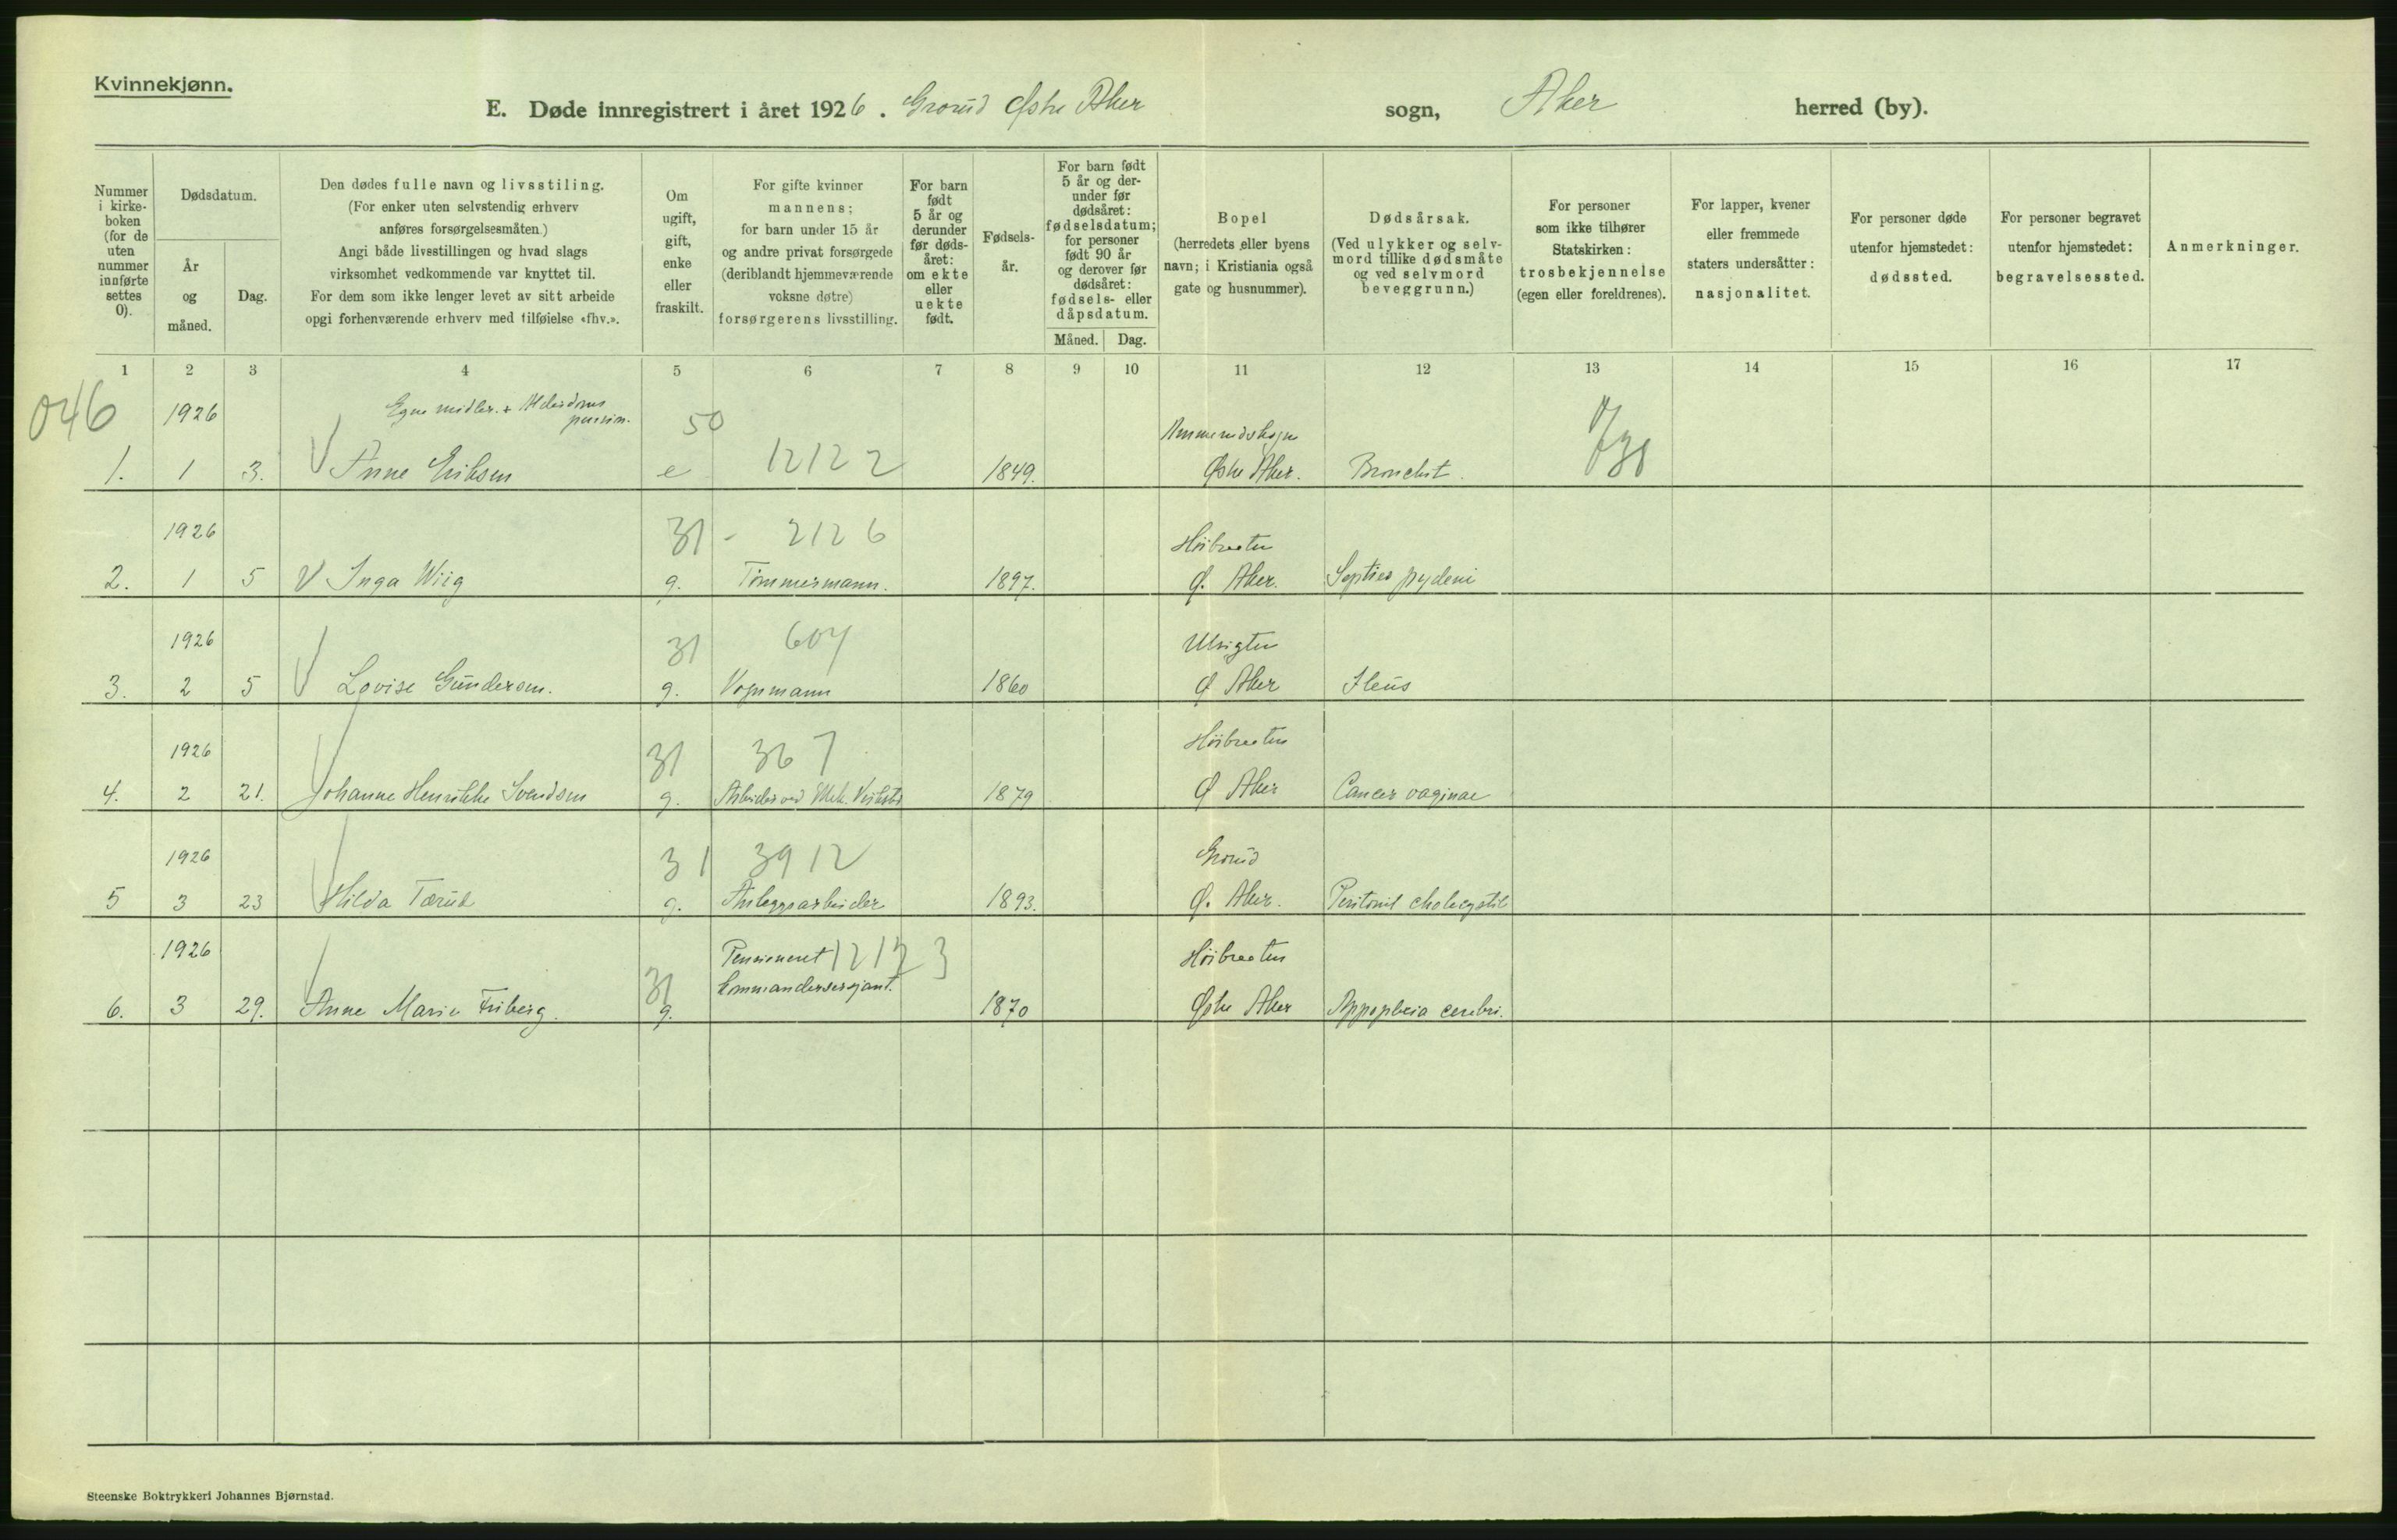 Kvinnekjønn.
E. Døde innregistrert i året 1926. Grorud Østre Aker sogn, Aker herred (by).
Nummer i kirke-boken (for de uten nummer innførte settes 0).
Dødsdatum.
År og måned.
Dag.
Den dødes fulle navn og livsstiling.
(For enker uten selvstendig erhverv
anføres forsørgelsesmåten.)
Angi både livsstillingen og hvad slags
virksomhet vedkommende var knyttet til.
For dem som ikke lenger levet av sitt arbeide
opgi forhenværende erhverv med tilføielse «fhv.».
Om ugift, gift, enke eller fraskilt.
For gifte kvinner
mannens;
for barn under 15 år
og andre privat forsørgede
(deriblandt hjemmeværende
voksne døtre)
forsørgerens livsstilling.
For barn født 5 år og derunder før døds-året: om ekte eller uekte født.
Fødsels-år.
For barn født
5 år og der-
under før
dødsåret:
fødselsdatum;
for personer
født 90 år
og derover før
dødsåret:
fødsels- eller
dåpsdatum.
Måned. Dag.
Bopel
(herredets eller byens
navn; i Kristiania også
gate og husnummer).
Dødsårsak.
(Ved ulykker og selv-
mord tillike dødsmåte
og ved selvmord
beveggrunn.)
For personer
som ikke tilhører
Statskirken:
trosbekjennelse
(egen eller foreldrenes).
For lapper, kvener
eller fremmede
staters undersåtter:
nasjonalitet.
For personer døde
utenfor hjemstedet:
dødssted.
For personer begravet
utenfor hjemstedet:
begravelsessted.
Anmerkninger.
1 2 3 4 5 6 7 8 9 10 11 12 13 14 15 16 17
046 1926 Egne midler + Alderdoms 50
1. 1 3. V Anne Eriksen e 12122 1849. Østre Aker. Bronchit.
1926 31 - 2126 Høibraaten
2. 1 5 V Inga Wiig g. Tømmermann. 1897. Ø. Aker.
1926 31 604 Utsigten
3. 2 5 V Lovise Gundersen. g. Vognmann 1860 Ø Aker Ileus
1926 31 367 Høibraaten
4. 2 21. Johanne Henrikke Svendsen g. Arbeider ved Mek. Verksted 1879 Ø Aker Cancer vaginae
1926 31 3912 Grorud
5 3 23 Hilda Tærud g. Anleggsarbeider 1893. Ø. Aker. Peritonit cholecystit
1926 Pensioneret 12123 Høibraaten
6. 3 29. Anne Marie Friberg. 31 g. Kommandersersjant. 1870 Østre Aker Appoplexia cerebri.
Steenske Boktrykkeri Johannes Bjørnstad.